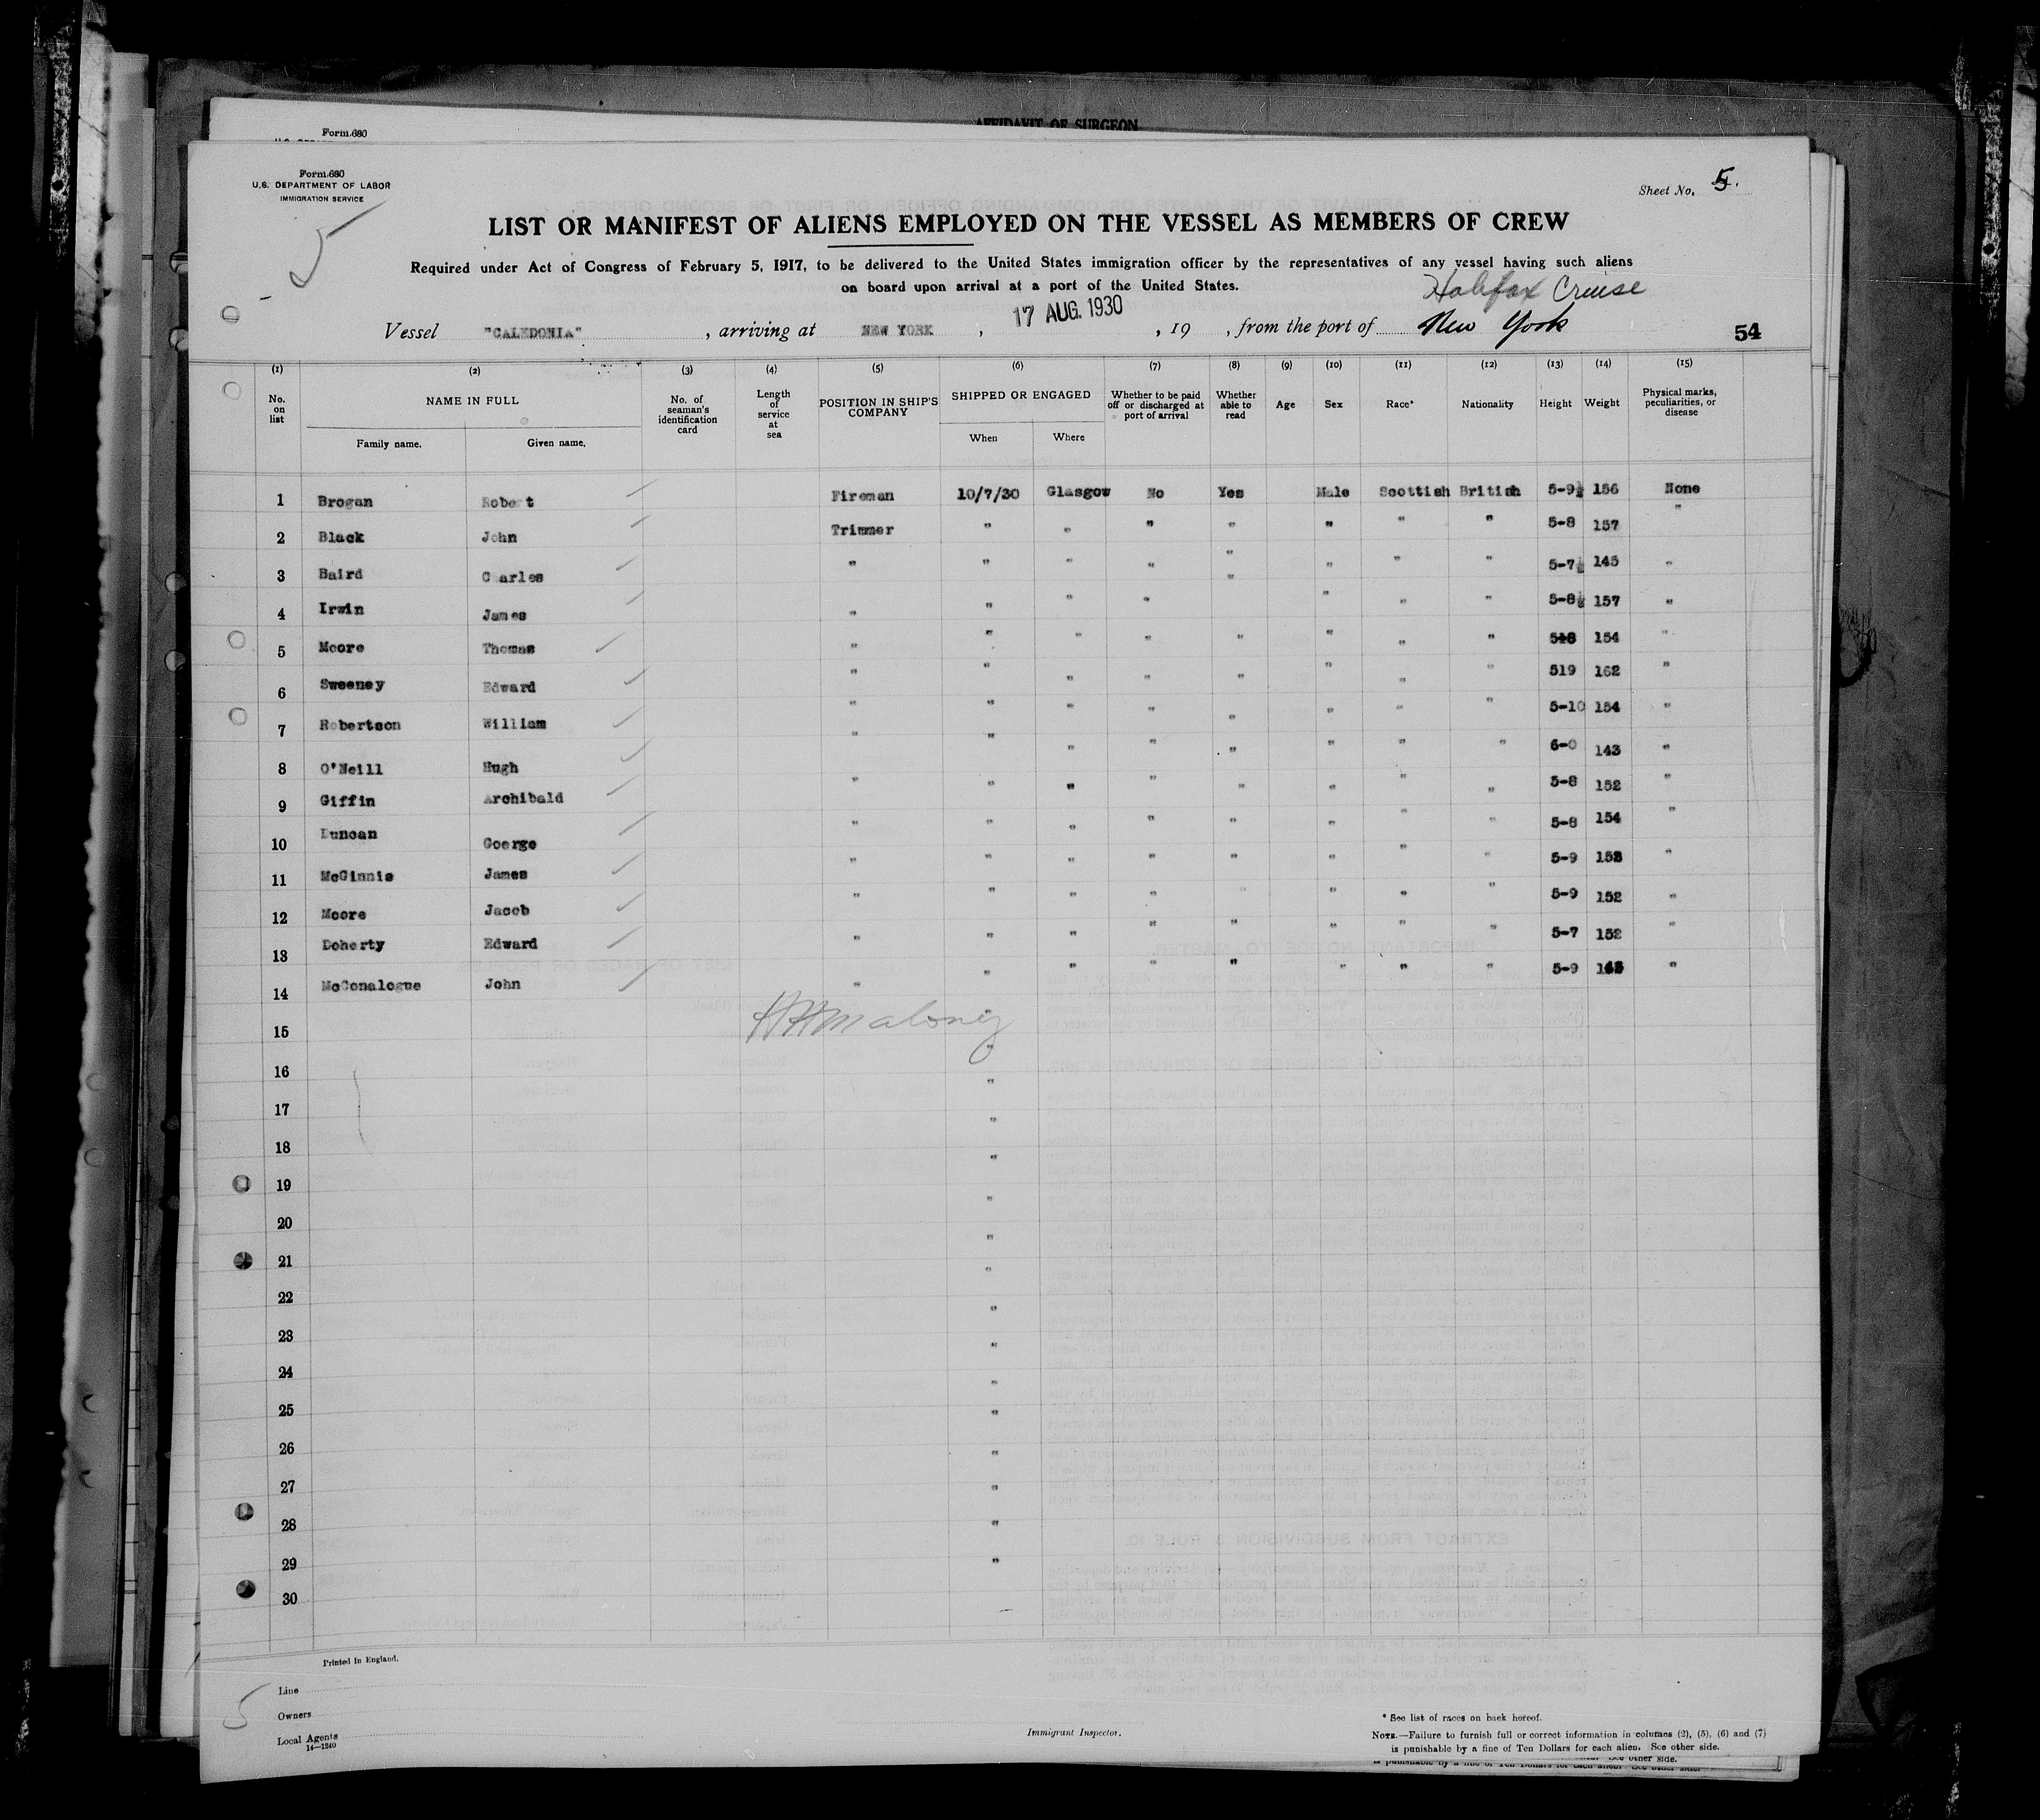 AFFIDAVIT OF SURGEON
Form 680
Form 680
U.S. DEPARTMENT OF LABOR
IMMIGRATION SERVICE
Sheet No. 5.
5
LIST OR MANIFEST OF ALIENS EMPLOYED ON THE VESSEL AS MEMBERS OF CREW
Required under Act of Congress of February 5, 1917, to be delivered to the United States immigration officer by the representatives of any vessel having such aliens
on board upon arrival at a port of the United States.
Halifax Cruise
Vessel "CALEDONIA", arriving at NEW YORK, 17 AUG. 1930, 19 , from the port of New York 54
(1) (2) (3) (4) (5) (6) (7) (8) (9) (10) (11) (12) (13) (14) (15)
No. on list NAME IN FULL No. of seaman's identification card Length of service at sea POSITION IN SHIP'S COMPANY SHIPPED OR ENGAGED Whether to be paid off or discharged at port of arrival Whether able to read Age Sex Race* Nationality Height Weight Physical marks, peculiarities, or disease
Family name. Given name. When Where
1 Brogan Robert Fireman 10/7/30 Glasgow No Yes Male Scottish British 5-9½ 156 None
2 Black John Trimmer " " " " " " " 5-8 157 "
3 Baird C arles " " " " " " " " 5-7½ 145 "
4 Irwin James " " " " " " " " 5-8½ 157 "
5 Moore Thomas " " " " " " " " 154 "
6 Sweeney Edward " " " " " " " " 519 162 "
7 Robertson William " " " " " " " " 5-10 154 "
8 O'Neill Hugh " " " " " " " " 6-0 143 "
9 Giffin Archibald " " " " " " " " 5-8 152 "
10 Duncan Goerge " " " " " " " " 5-8 154 "
11 McGinnis James " " " " " " " " 5-9 "
12 Moore Jacob " " " " " " " " 5-9 152 "
13 Doherty Edward " " " " " " " " 5-7 152 "
14 McConalogue John " " " " " " " " 5-9 "
15 HHMaloney "
16 "
17 "
18 "
19 "
20 "
21 "
22 "
23 "
24 "
25 "
26 "
27 "
28 "
29 "
30
Printed in England.
5
Line
Owners
Local Agents
14—1240
Immigrant Inspector.
* See list of races on back hereof.
NOTE.—Failure to furnish full or correct information in columns (2), (5), (6) and (7)
is punishable by a fine of Ten Dollars for each alien. See other side.
is punishable by a fine of Ten Dollars for each alien. See other side.